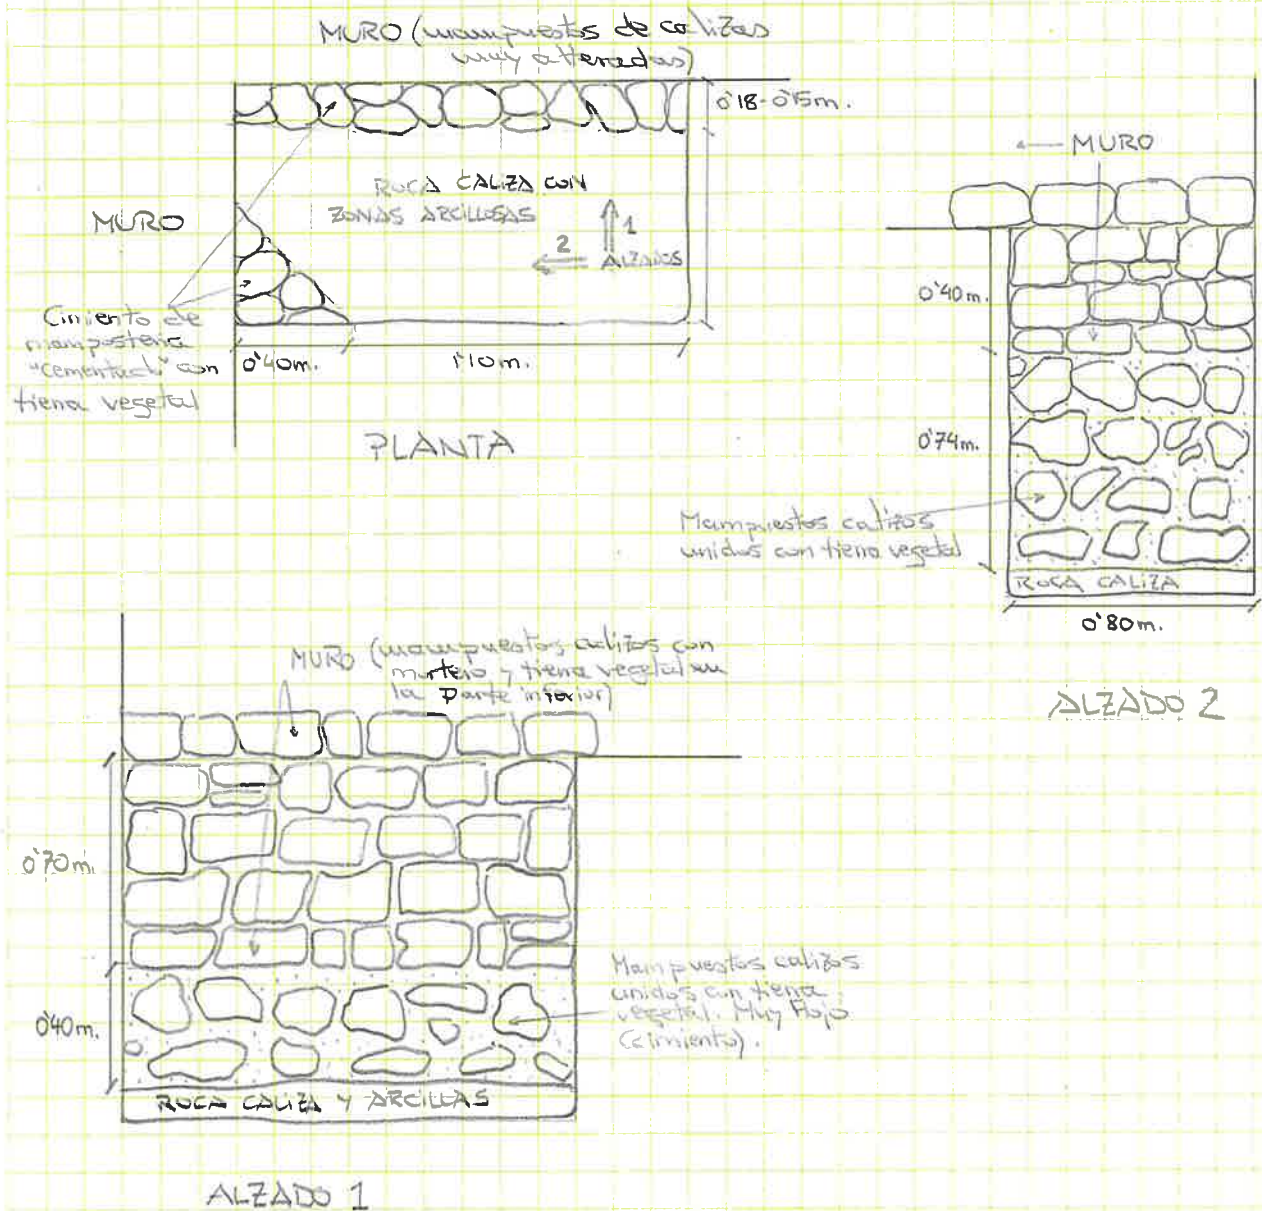 MURO (mampuestos de calizas
muy alteradas)
0'18-0'15m.
ROCA CALIZA CON
ZONAS ARCILLOSAS
MURO
1
2
ALZADOS
Cimiento de
mampostería
"cementada" con
tierra vegetal
0'40m.
1'10m.
PLANTA
MURO
0'40m.
0'74m.
Mampuestos calizos
unidos con tierra vegetal
ROCA CALIZA
0'80m.
ALZADO 2
MURO (mampuestos calizos con
mortero y tierra vegetal en
la parte inferior)
0'70m.
0'40m.
Mampuestos calizos
unidos con tierra
vegetal. Muy flojo
(cimiento).
ROCA CALIZA Y ARCILLAS
ALZADO 1